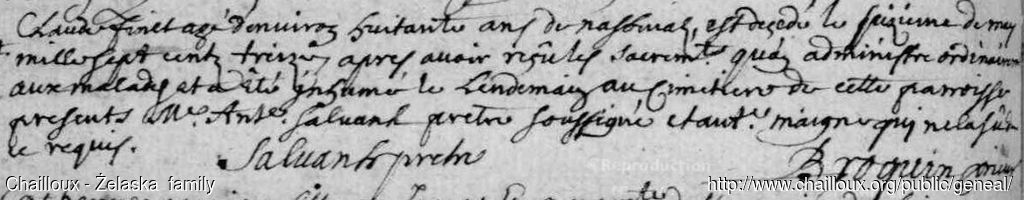 Claude finet agé denviron huitante ans de nasbinal, est decedé le seizieme de may
mille sept centz treize apres avoir reçu les sacremts. quon administre ordinairem
aux malades et a été inhumé le Lendemain au Cimetiere de cette parroisse
presents Mre. Ante. Salvanh pretre soussigné et ant. maigne qui ne la sceu
de requis.
Salvanh pretre
Broquin prieur
Reproduction
Chailloux - Żelaska family
http://www.chailloux.org/public/geneal/